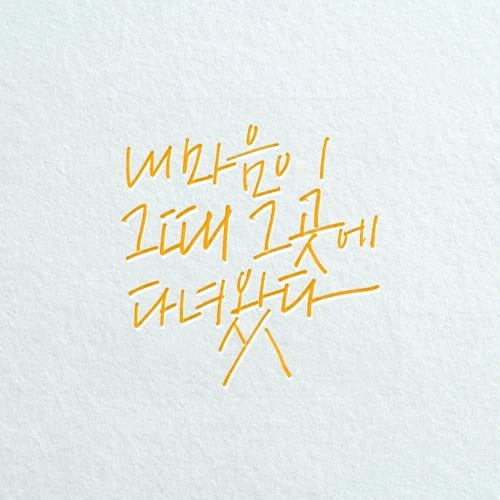 내 마음이
그때 그곳에
다녀왔다